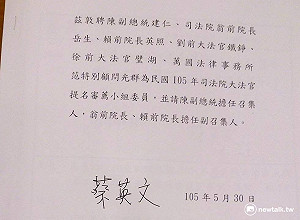 茲敦聘陳副總統建仁、司法院翁前院長
岳生、賴前院長英照、劉前大法官鐵錚、
徐前大法官璧湖、萬國法律事務所
范特別顧問光群為民國 105 年司法院大法官
提名審薦小組委員,並請陳副總統擔任召集
人,翁前院長、賴前院長擔任副召集人。
蔡英文
105 年 5 月 30 日
newtalk.tw